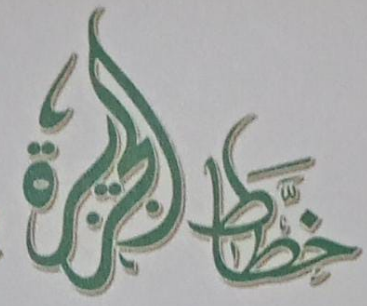 خطّاط الجزيرة